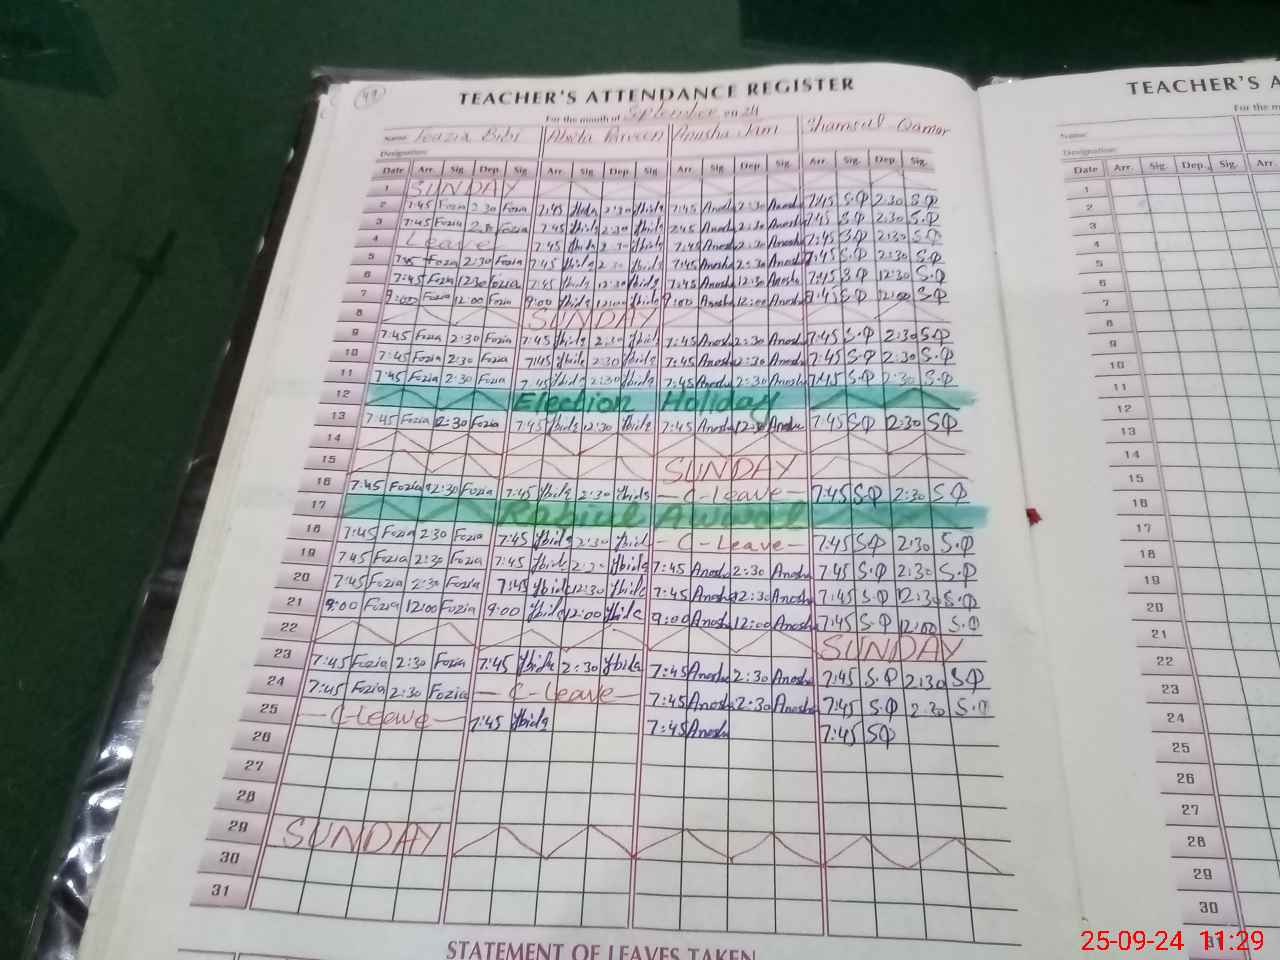 49
TEACHER'S ATTENDANCE REGISTER
For the month of September on 24
Name Fozia Bibi Abida Parveen Anusha Jam Shamsul Qamar
Designation
Date Arr. Sig. Dep. Sig. Arr. Sig. Dep. Sig. Arr. Sig. Dep. Sig. Arr. Sig. Dep. Sig.
1 SUNDAY
2 7:45 Fozia 2:30 Fozia 7:45 Abida 2:30 Abida 7:45 Anosha 2:30 Anosha 7:45 S.Q 2:30 S.Q
3 7:45 Fozia 2:30 Fozia 7:45 Abida 2:30 Abida 7:45 Anosha 2:30 Anosha 7:45 S.Q 2:30 S.Q
4 Leave 7:45 Abida 2:30 Abida 7:45 Anosha 2:30 Anosha 7:45 S.Q 2:30 S.Q
5 7:45 Fozia 2:30 Fozia 7:45 Abida 2:30 Abida 7:45 Anosha 2:30 Anosha 7:45 S.Q 2:30 S.Q
6 7:45 Fozia 12:30 Fozia 7:45 Abida 12:30 Abida 7:45 Anosha 12:30 Anosha 7:45 S.Q 12:30 S.Q
7 9:00 Fozia 12:00 Fozia 9:00 Abida 12:00 Abida 9:00 Anosha 12:00 Anosha S.Q 12:00 S.Q
8 SUNDAY
9 7:45 Fozia 2:30 Fozia 7:45 Abida 2:30 Abida 7:45 Anosha 2:30 Anosha 7:45 S.Q 2:30 S.Q
10 7:45 Fozia 2:30 Fozia 7:45 Abida 2:30 Abida 7:45 Anosha 2:30 Anosha 7:45 S.Q 2:30 S.Q
11 7:45 Fozia 2:30 Fozia 7:45 Abida 2:30 Abida 7:45 Anosha 2:30 Anosha 7:45 S.Q 2:30 S.Q
12 Election Holiday
13 7:45 Fozia 2:30 Fozia 7:45 Abida 12:30 Abida 7:45 Anosha 12:30 Anosha 7:45 SQ 2:30 SQ
14
15 SUNDAY
16 7:45 Fozia 2:30 Fozia 7:45 Abida 2:30 Abida - C-Leave - 7:45 SQ 2:30 SQ
17 Rabiul Awwal
18 7:45 Fozia 2:30 Fozia 7:45 Abida 2:30 Abida - C-Leave - 7:45 SQ 2:30 S.Q
19 7:45 Fozia 2:30 Fozia 7:45 Abida 2:30 Abida 7:45 Anosha 2:30 Anosha 7:45 S.Q 2:30 S.Q
20 7:45 Fozia 2:30 Fozia 7:45 Abida 12:30 Abida 7:45 Anosha 12:30 Anosha 7:45 S.Q 12:30 S.Q
21 9:00 Fozia 12:00 Fozia 9:00 Abida 12:00 Abida 9:00 Anosha 12:00 Anosha 7:45 S.Q 12:00 S.Q
22 SUNDAY
23 7:45 Fozia 2:30 Fozia 7:45 Abida 2:30 Abida 7:45 Anosha 2:30 Anosha 7:45 S.Q 2:30 SQ
24 7:45 Fozia 2:30 Fozia - C-Leave - 7:45 Anosha 2:30 Anosha 7:45 S.Q 2:30 S.Q
25 - C-Leave - 7:45 Abida 7:45 Anosha 7:45 SQ
26
27
28
29 SUNDAY
30
31
STATEMENT OF LEAVES TAKEN
TEACHER'S A
For the m
Name:
Designation:
Date Arr. Sig. Dep. Sig. Arr.
1
2
3
4
5
6
7
8
9
10
11
12
13
14
15
16
17
18
19
20
21
22
23
24
25
26
27
28
29
30
31
25-09-24 11:29